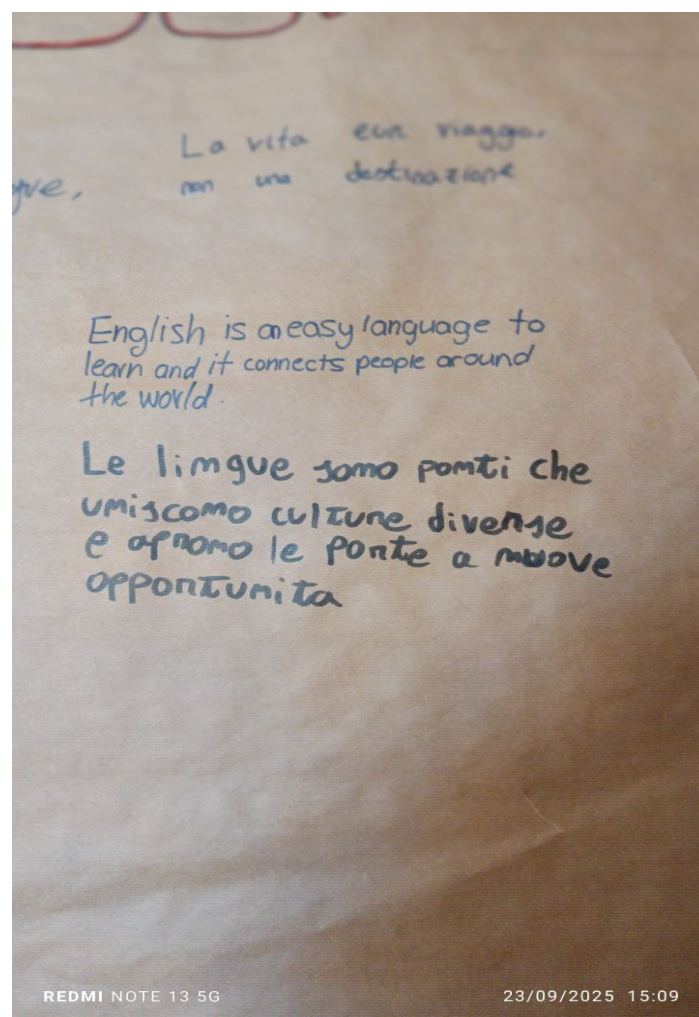 La vita e un viaggio,
non una destinazione
English is an easy language to
learn and it connects people around
the world.
Le lingue sono ponti che
uniscono culture diverse
e aprono le porte a nuove
opportunita
REDMI NOTE 13 5G
23/09/2025 15:09